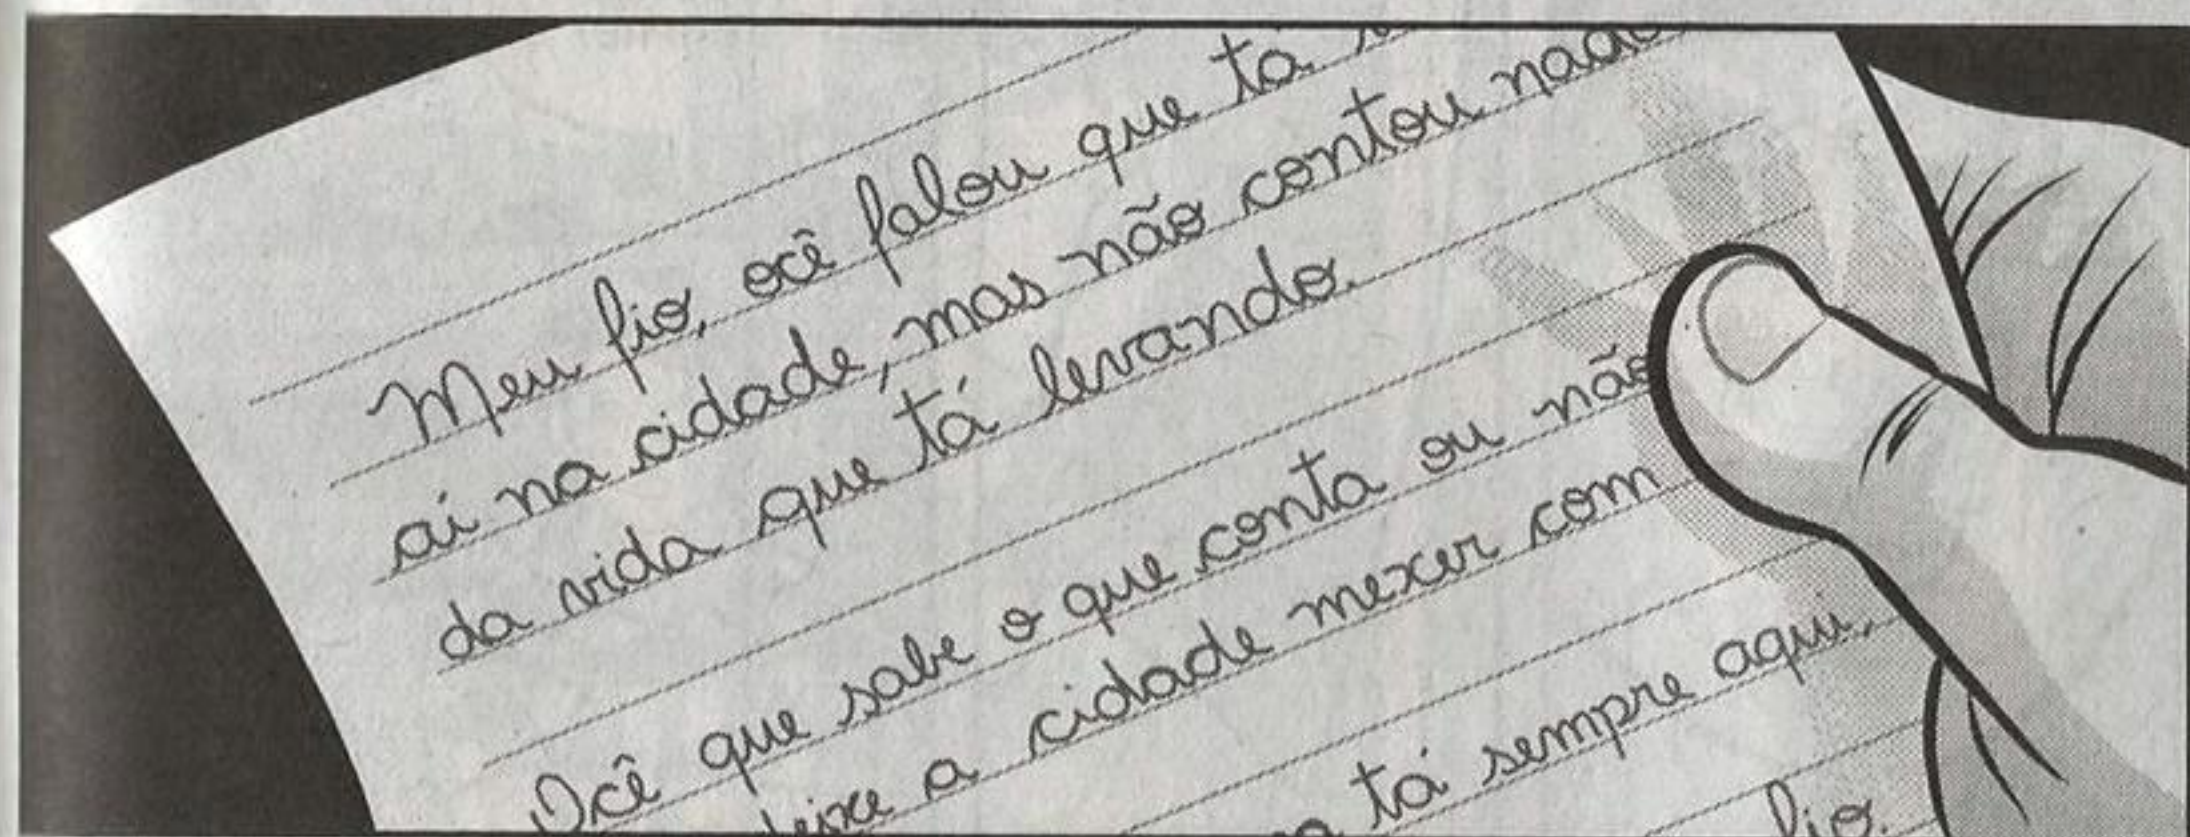 Meu fio, ocê falou que tá
aí na cidade, mas não contou nada
da vida que tá levando.
Ocê que sabe o que conta ou não
deixe a cidade mexer com
tá sempre aqui,
fio.